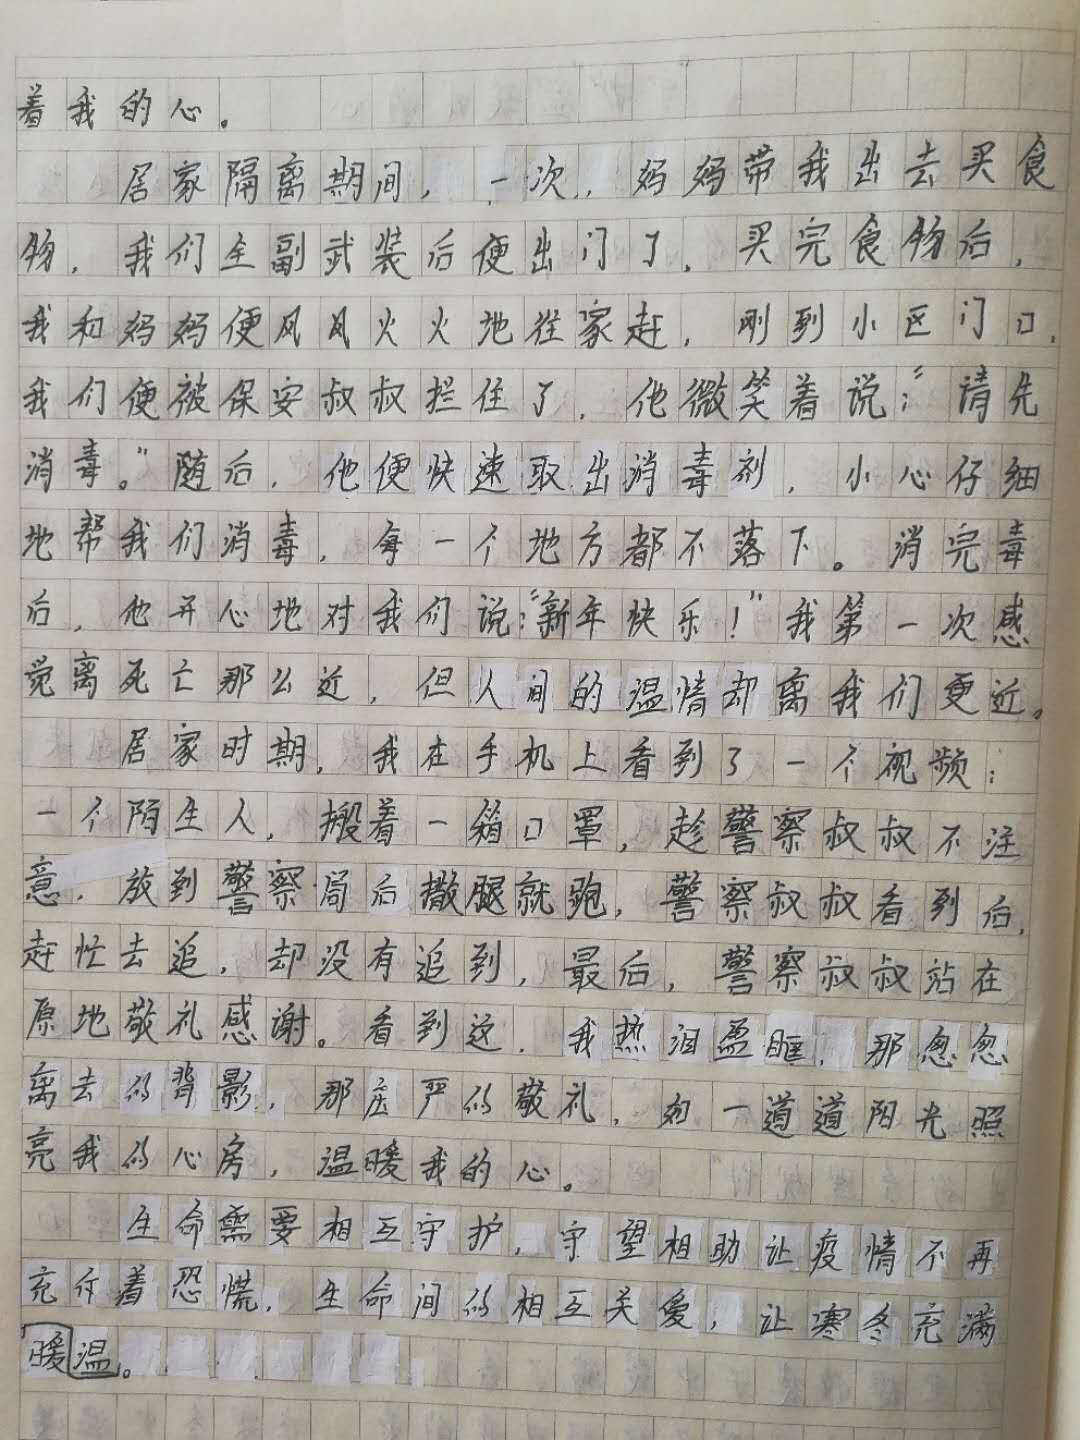 着我的心。
居家隔离期间，一次，妈妈带我出去买食
物，我们全副武装后便出门了，买完食物后，
我和妈妈便风风火火地往家赶，刚到小区门口，
我们便被保安叔叔拦住了，他微笑着说：“请先
消毒。”随后，他便快速取出消毒剂，小心仔细
地帮我们消毒，每一个地方都不落下。消完毒
后，他开心地对我们说：“新年快乐！”我第一次感
觉离死亡那么近，但人间的温情却离我们更近。
居家时期，我在手机上看到了一个视频：
一个陌生人，搬着一箱口罩，趁警察叔叔不注
意，放到警察局后撒腿就跑，警察叔叔看到后，
赶忙去追，却没有追到，最后，警察叔叔站在
原地敬礼感谢。看到这，我热泪盈眶，那忽忽
离去的背影，那庄严的敬礼，如一道道阳光照
亮我的心房，温暖我的心。
生命需要相互守护，守望相助让疫情不再
充付着恐慌，生命间的相互关爱，让寒冬充满
暖温。